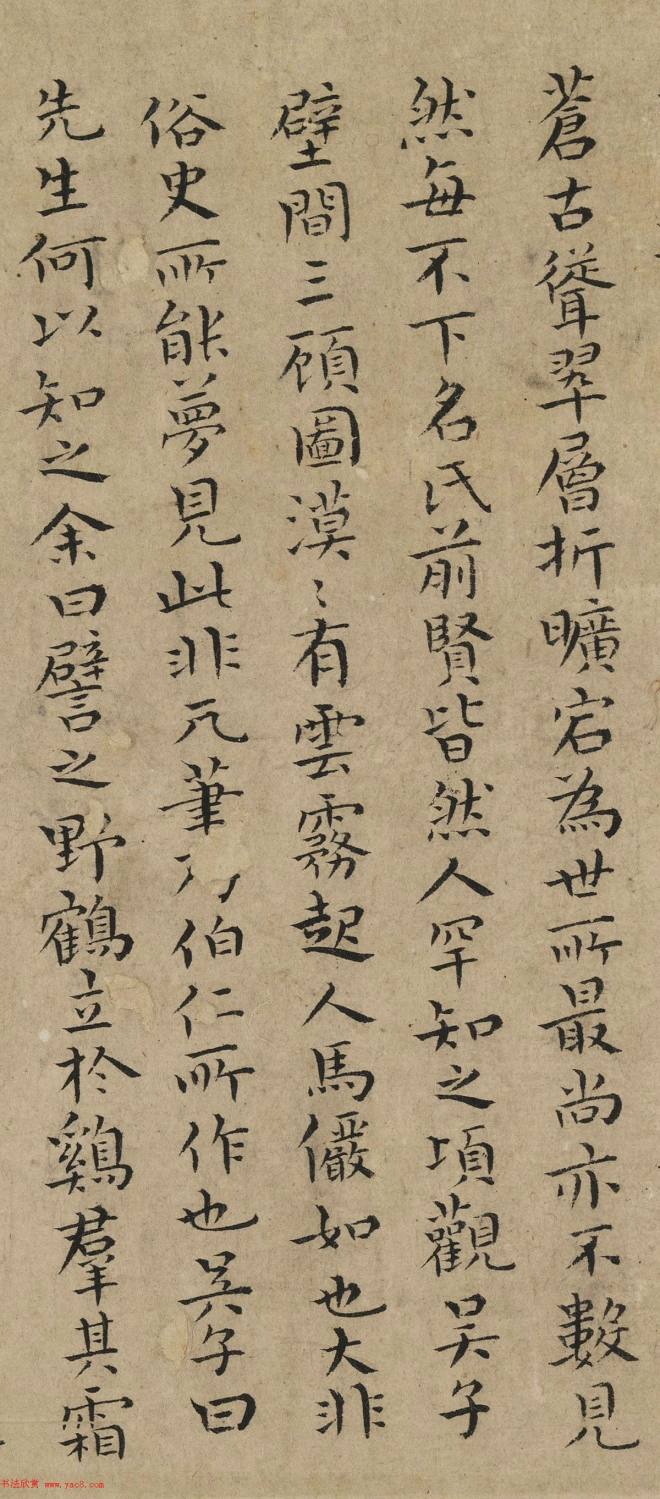 蒼古聳翠層折曠宕為世所最尚亦不數見
然每不下名氏前賢皆然人罕知之項觀吴子
壁間三顧圖漠〻有雲霧起人馬儼如也大非
俗史所能夢見此非凡筆乃伯仁所作也吴子曰
先生何以知之余曰譬之野鶴立於鷄羣其霜
书法欣赏 www.yac8.com